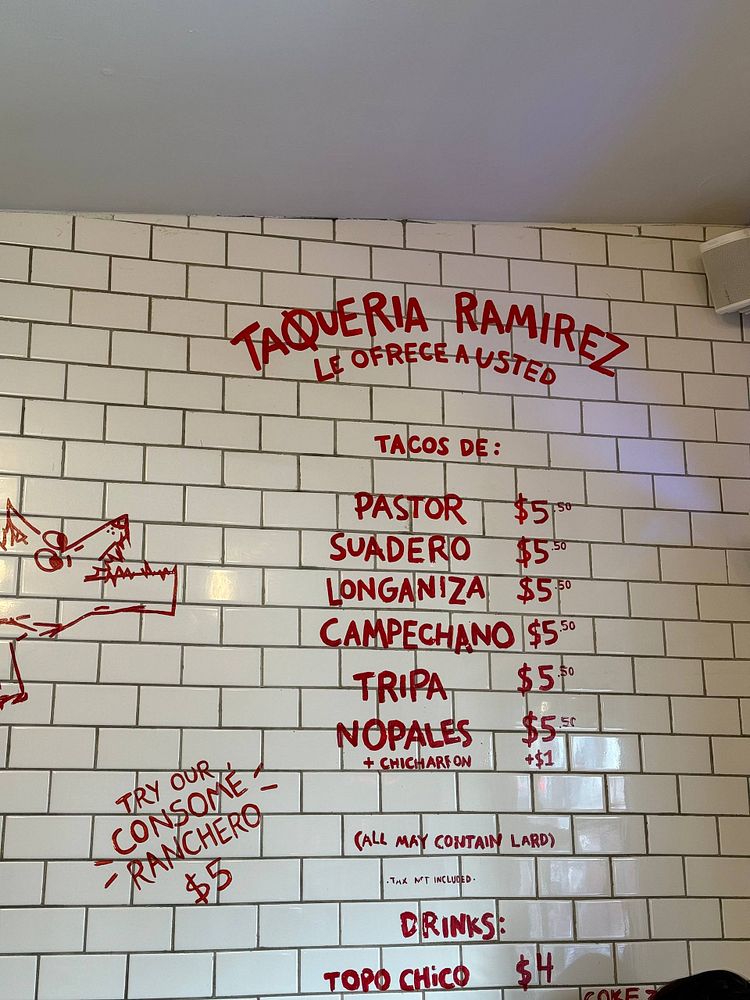 TAQUERIA RAMIREZ
LE OFRECE A USTED
TACOS DE:
PASTOR $5.50
SUADERO $5.50
LONGANIZA $5.50
CAMPECHANO $5.50
TRIPA $5.50
NOPALES $5.50
+ CHICHARRON +$1
(ALL MAY CONTAIN LARD)
·TAX NOT INCLUDED·
TRY OUR
CONSOMÉ
RANCHERO
$5
DRINKS:
TOPO CHICO $4
COKE